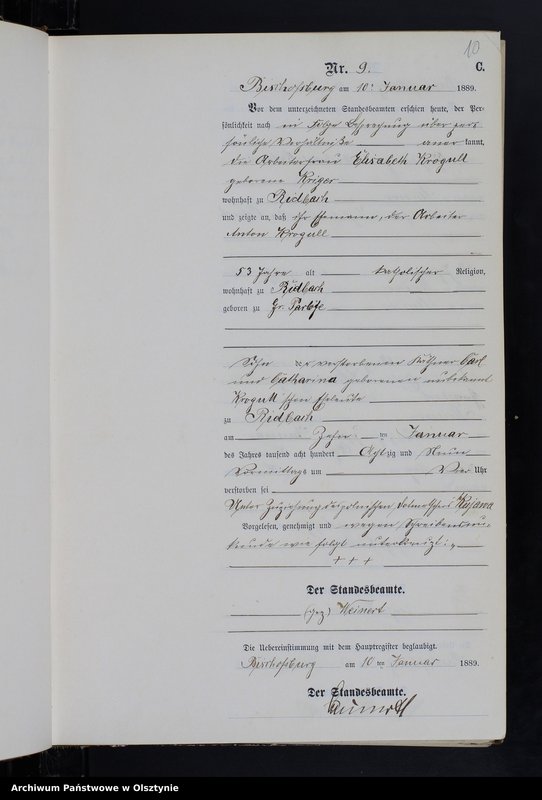 10
Nr. 9. C.
Bischofsburg am 10t Januar 1889.
Vor dem unterzeichneten Standesbeamten erschien heute, der Per-
sönlichkeit nach in Folge Besprechung über per-
sönliche Verhältnisse aner kannt,
die Arbeiterfrau Elisabeth Krogull
geborene Kriger
wohnhaft zu Ridbach
und zeigte an, daß ihr Ehemann, der Arbeiter
Anton Krogull
53 Jahre alt katholischer Religion,
wohnhaft zu Ridbach
geboren zu Gr. Parlöse
Sohn der verstorbenen Käthner Carl
und Catharina geborenen unbekannt
Krogull schen Eheleute
zu Ridbach
am Zehn ten Januar
des Jahres tausend acht hundert Achtzig und Neun
Vormittags um Vier Uhr
verstorben sei
Unter Zuziehung des polnischen Dolmetschers Kujawa
Vorgelesen, genehmigt und wegen Schreibensun-
kunde wie folgt unterkreuzt:
+ + +
Der Standesbeamte.
(gez) Weinert
Die Uebereinstimmung mit dem Hauptregister beglaubigt.
Bischofsburg am 10 ten Januar 1889.
Der Standesbeamte.
Archiwum Państwowe w Olsztynie